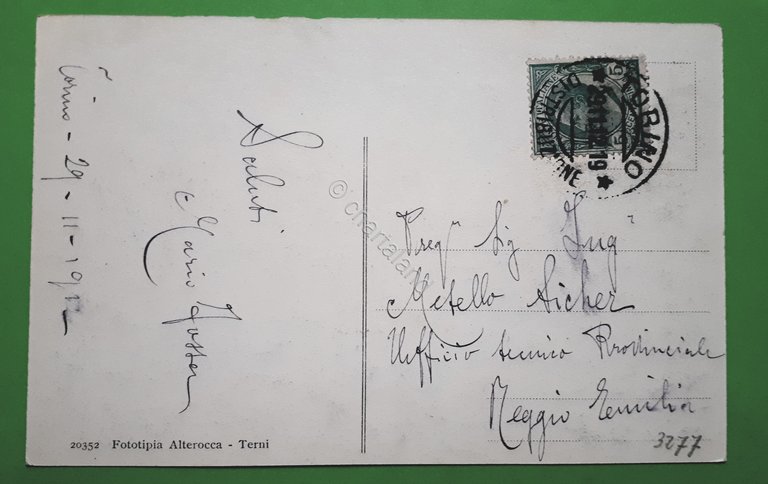 Torino - 29 - 11 - 1912
Saluti
Mario
Preg.º Sig Ing.º
Metello Aicher
Ufficio tecnico Provinciale
Reggio Emilia
3277
20352 Fototipia Alterocca - Terni
TORINO
29.11.12.19
DISTRIBUZIONE
15
© chartaland